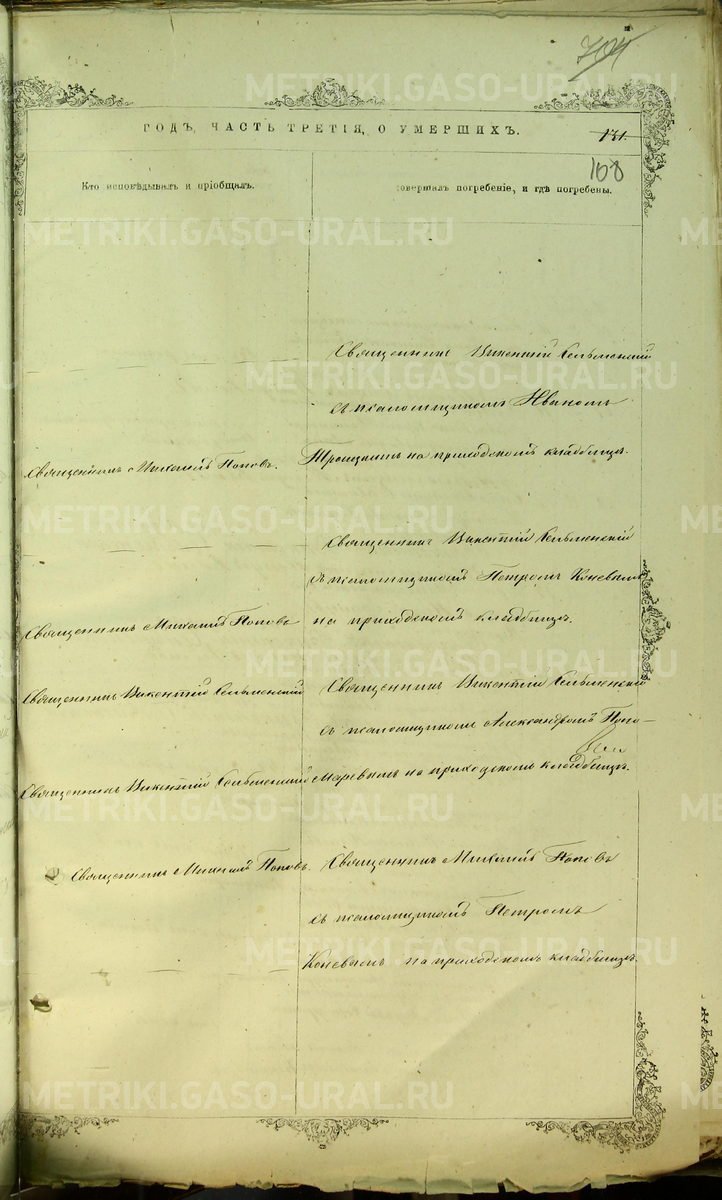 704
ГОДЪ, ЧАСТЬ ТРЕТІЯ, О УМЕРШИХЪ.
131.
108
Кто исповѣдывалъ и пріобщалъ.
совершалъ погребеніе, и гдѣ погребены.
Священникъ Викентій Сельменскій
съ псаломщикомъ Иваномъ
Священникъ Михаилъ Поповъ.
на приходскомъ кладбищѣ.
Священникъ Викентій Сельменскій
съ псаломщикомъ Петромъ Коневымъ
Священникъ Михаилъ Поповъ
на приходскомъ кладбищѣ.
Священникъ Викентій Сельменскій
Священникъ Викентій Сельменскій
съ псаломщикомъ Александромъ Поно-
Священникъ Викентій Сельменскій
маревымъ на приходскомъ кладбищѣ.
Священникъ Михаилъ Поповъ.
Священникъ Михаилъ Поповъ
съ псаломщикомъ Петромъ
Коневымъ на приходскомъ кладбищѣ.
METRIKI.GASO-URAL.RU